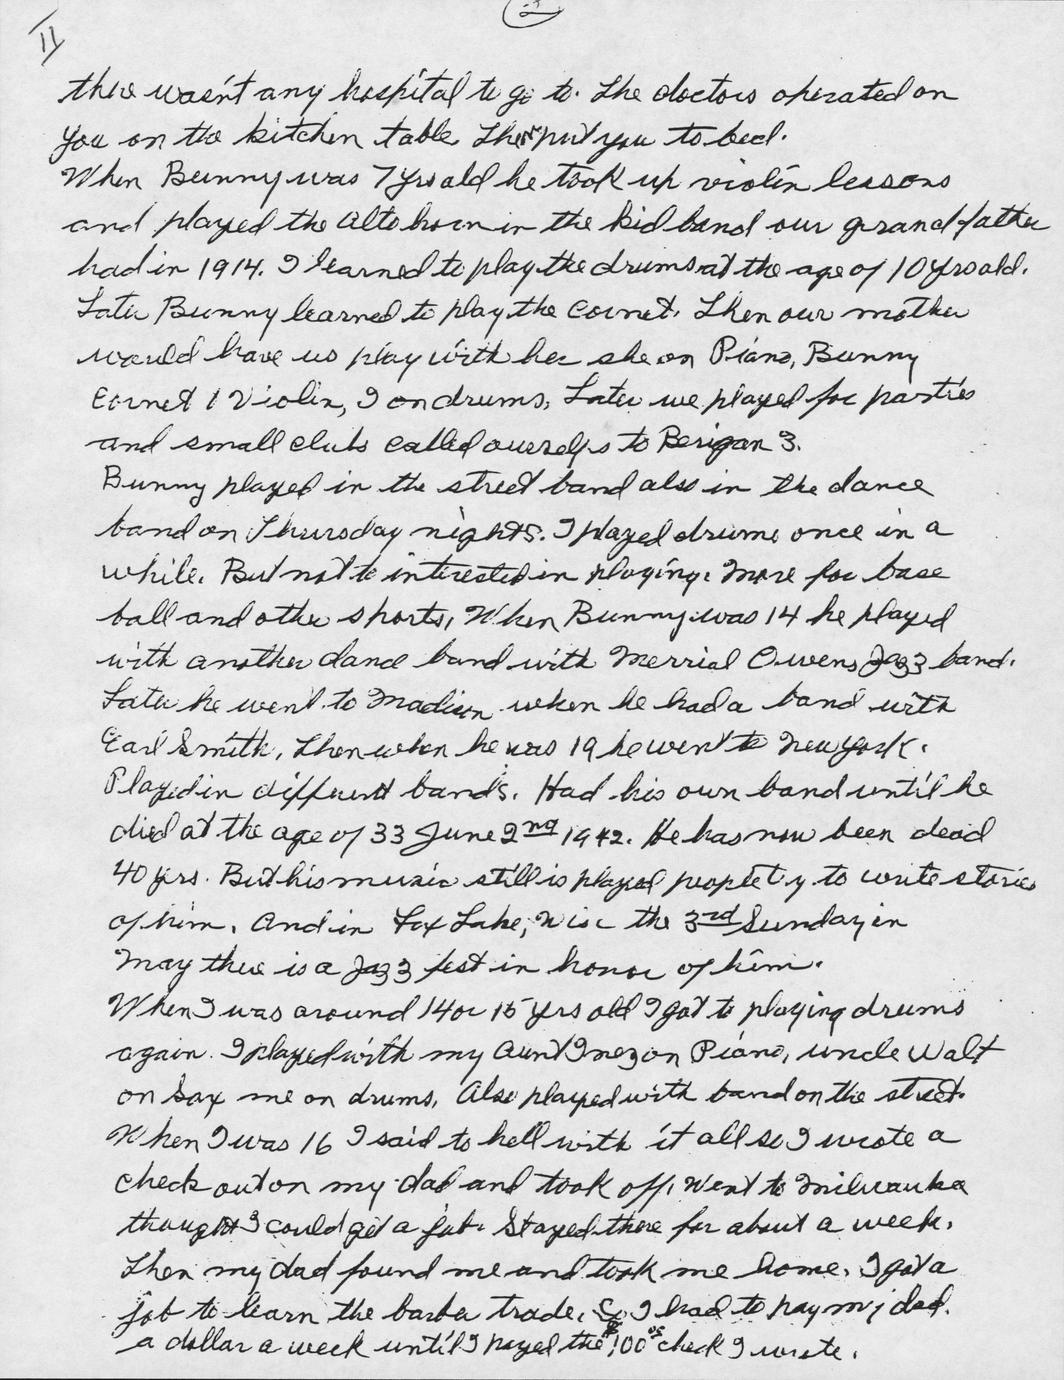 II
2
there wasn't any hospital to go to. The doctors operated on
you on the kitchen table. Then put you to bed.
When Bunny was 7 yrs old he took up violin lessons
and played the alto horn in the kid band our grandfather
had in 1914. I learned to play the drums at the age of 10 yrs old.
Later Bunny learned to play the cornet. Then our mother
would have us play with her she on Piano, Bunny
Cornet & Violin, I on drums. Later we played for parties
and small clubs called ourselfs to Berigan 3.
Bunny played in the street band also in the dance
band on Thursday nights. I played drums once in a
while. But not to interested in playing. More for base
ball and other sports. When Bunny was 14 he played
with another dance band with Merrial Owens Jazz band.
Later he went to Madison when he had a band with
Earl Smith, Then when he was 19 he went to New York.
Played in different bands. Had his own band until he
died at the age of 33 June 2nd 1942. He has now been dead
40 yrs. But his music still is played people try to write stories
of him. And in Fox Lake, Wisc the 3rd Sunday in
May there is a Jazz fest in honor of him.
When I was around 14 or 15 yrs old I got to playing drums
again. I played with my Aunt Inez on Piano, uncle Walt
on Sax me on drums. Also played with band on the street.
When I was 16 I said to hell with it all so I wrote a
check out on my dad and took off. Went to Milwauka
thought I could get a job. Stayed there for about a week.
Then my dad found me and took me home. I got a
job to learn the barba trade. So I had to pay my dad.
a dollar a week until I payed the $100 00 check I wrote.